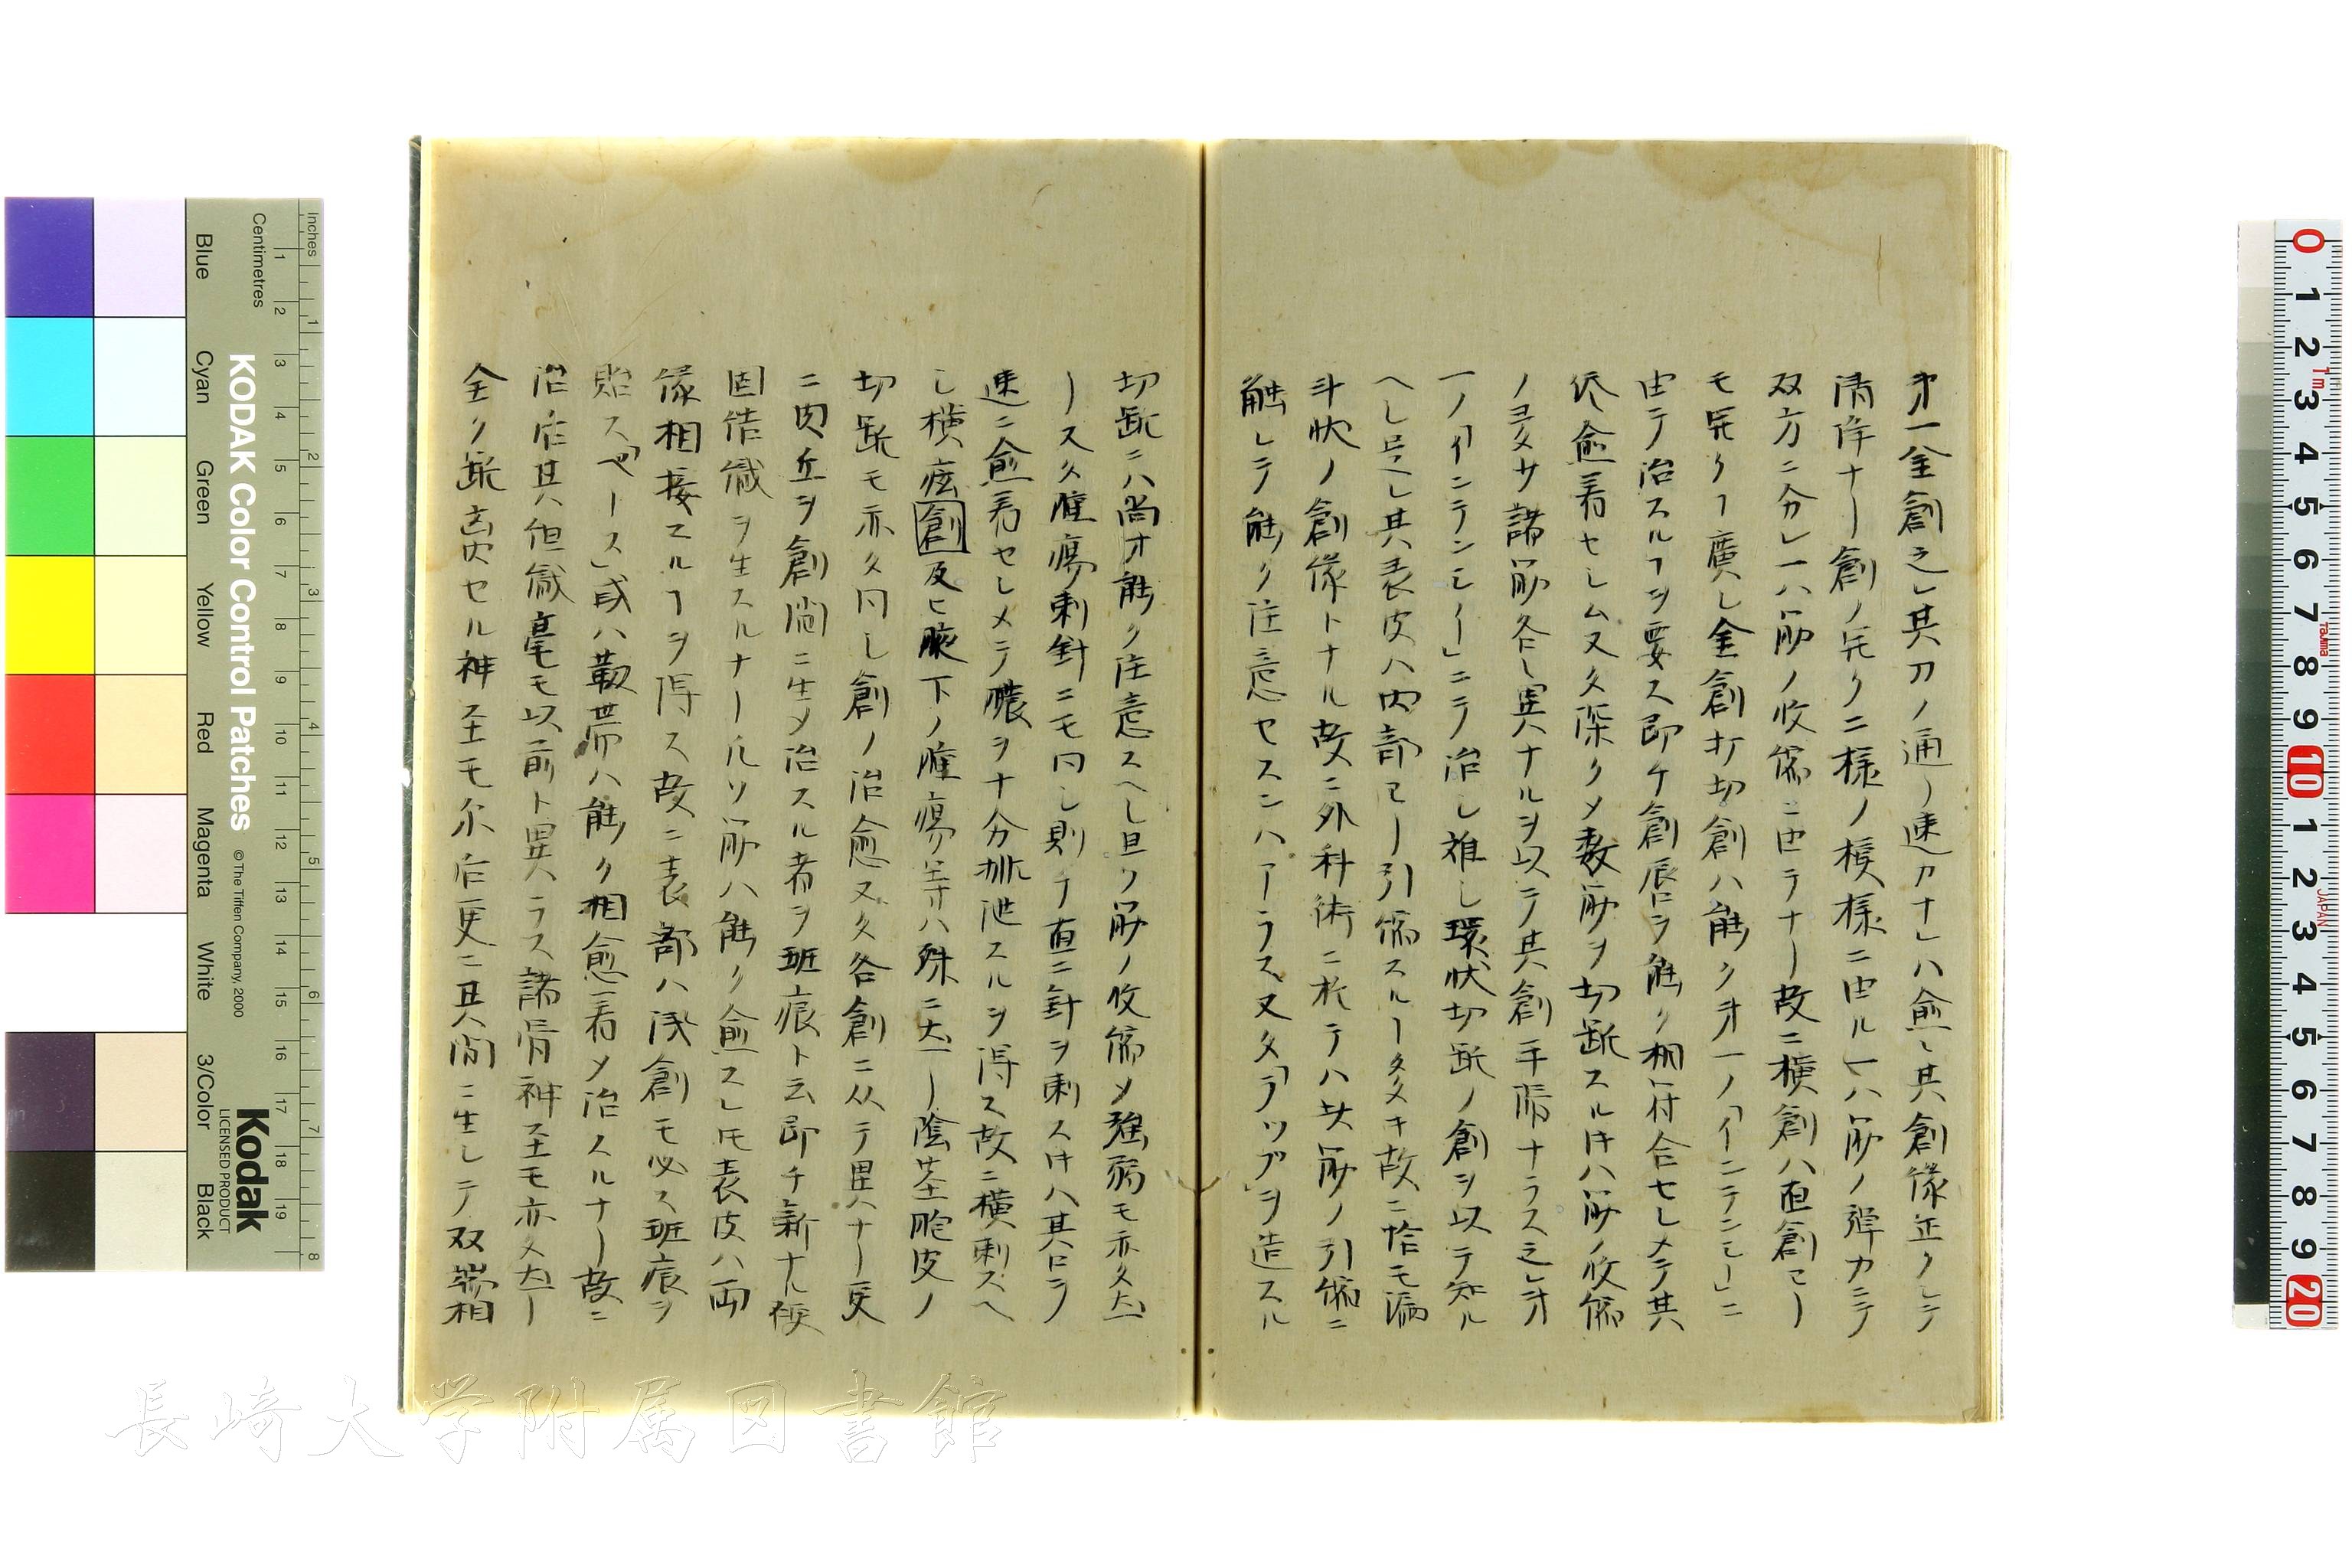 第一金創之レ其刀ノ通ノ速カナレハ愈〻其創縁正クシテ
清浄ナリ創ノ完ク二様ノ模様ニ由ル一ハ筋ノ弾力ニテ
双方ニ分レ一ハ筋ノ收縮ニ由テナリ故ニ横創ハ直創ヨリ
モ完ク廣シ金創打切創ハ能ク第一ノ「インテンシー」ニ
由テ治スルヿヲ要ス即ケ創唇ヲ能ク相符合セシメテ其
愈着セシム又タ深クメ数筋ヲ切断スル件ハ筋ノ收縮
ノヨタサ諸筋各〻異ナルヲ以テ其創平滑ナラス之レ第
一ノ「インテンシー」ニテ治シ難シ環状切断ノ創ヲ以テ知ル
ヘシ是レ其表皮ハ内部ヨリ引縮スルー多キ故ニ恰モ漏
斗状ノ創縁トナル故ニ外科術ニ於テハ其筋ノ引縮ニ
触レテ能ク注意セスンハアーラス又タ「ラップ」ヲ造スル
切断ニハ尚オ能ク注意スヘシ且ツ筋ノ收縮メ強弱モ亦タ大
ース久腫瘍刺針ニモ同シ則チ直ニ針ヲ刺ス件ハ其口ラ
速ニ愈着セシメテ膿ヲ十分排泄スルヲ得ス故ニ横刺スヘ
シ横痃創及ヒ腋下ノ腫瘍等ハ殊ニ大ー陰茎胞皮ノ
切断モ亦タ同シ創ノ治愈又タ各創ニ从テ異ナリ更
ニ肉丘ヲ創間ニ生メ治スル者ヲ班痕ト云即チ新ナル
固結織ヲ生スルナールソ筋ハ能ク愈スレ𪜈表皮ハ両
縁相接スルヿヲ得ス故ニ表部ハ浅創モ必ス班痕ヲ
貽ス「ペース」或ハ靱帯ハ能ク相愈着メ治スルナリ故ニ
治后其他織毫モ以前ト異ラス諸骨神至モ亦タ大ー
全ク断离セル神至モ尓后更ニ其間ニ生シテ双端相
Inches
Centimetres
1 2 3 4 5 6 7 8
1 2 3 4 5 6 7 8 9 10 11 12 13 14 15 16 17 18 19
KODAK Color Control Patches
© The Tiffen Company, 2000
Kodak
LICENSED PRODUCT
Blue Cyan Green Yellow Red Magenta White 3/Color Black
0 1 2 3 4 5 6 7 8 9 10 1 2 3 4 5 6 7 8 9 20
JAPAN
長崎大学附属図書館